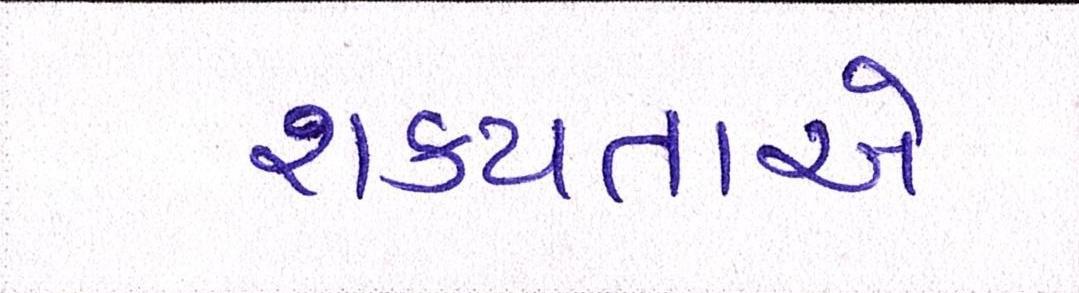 શક્યતાએ